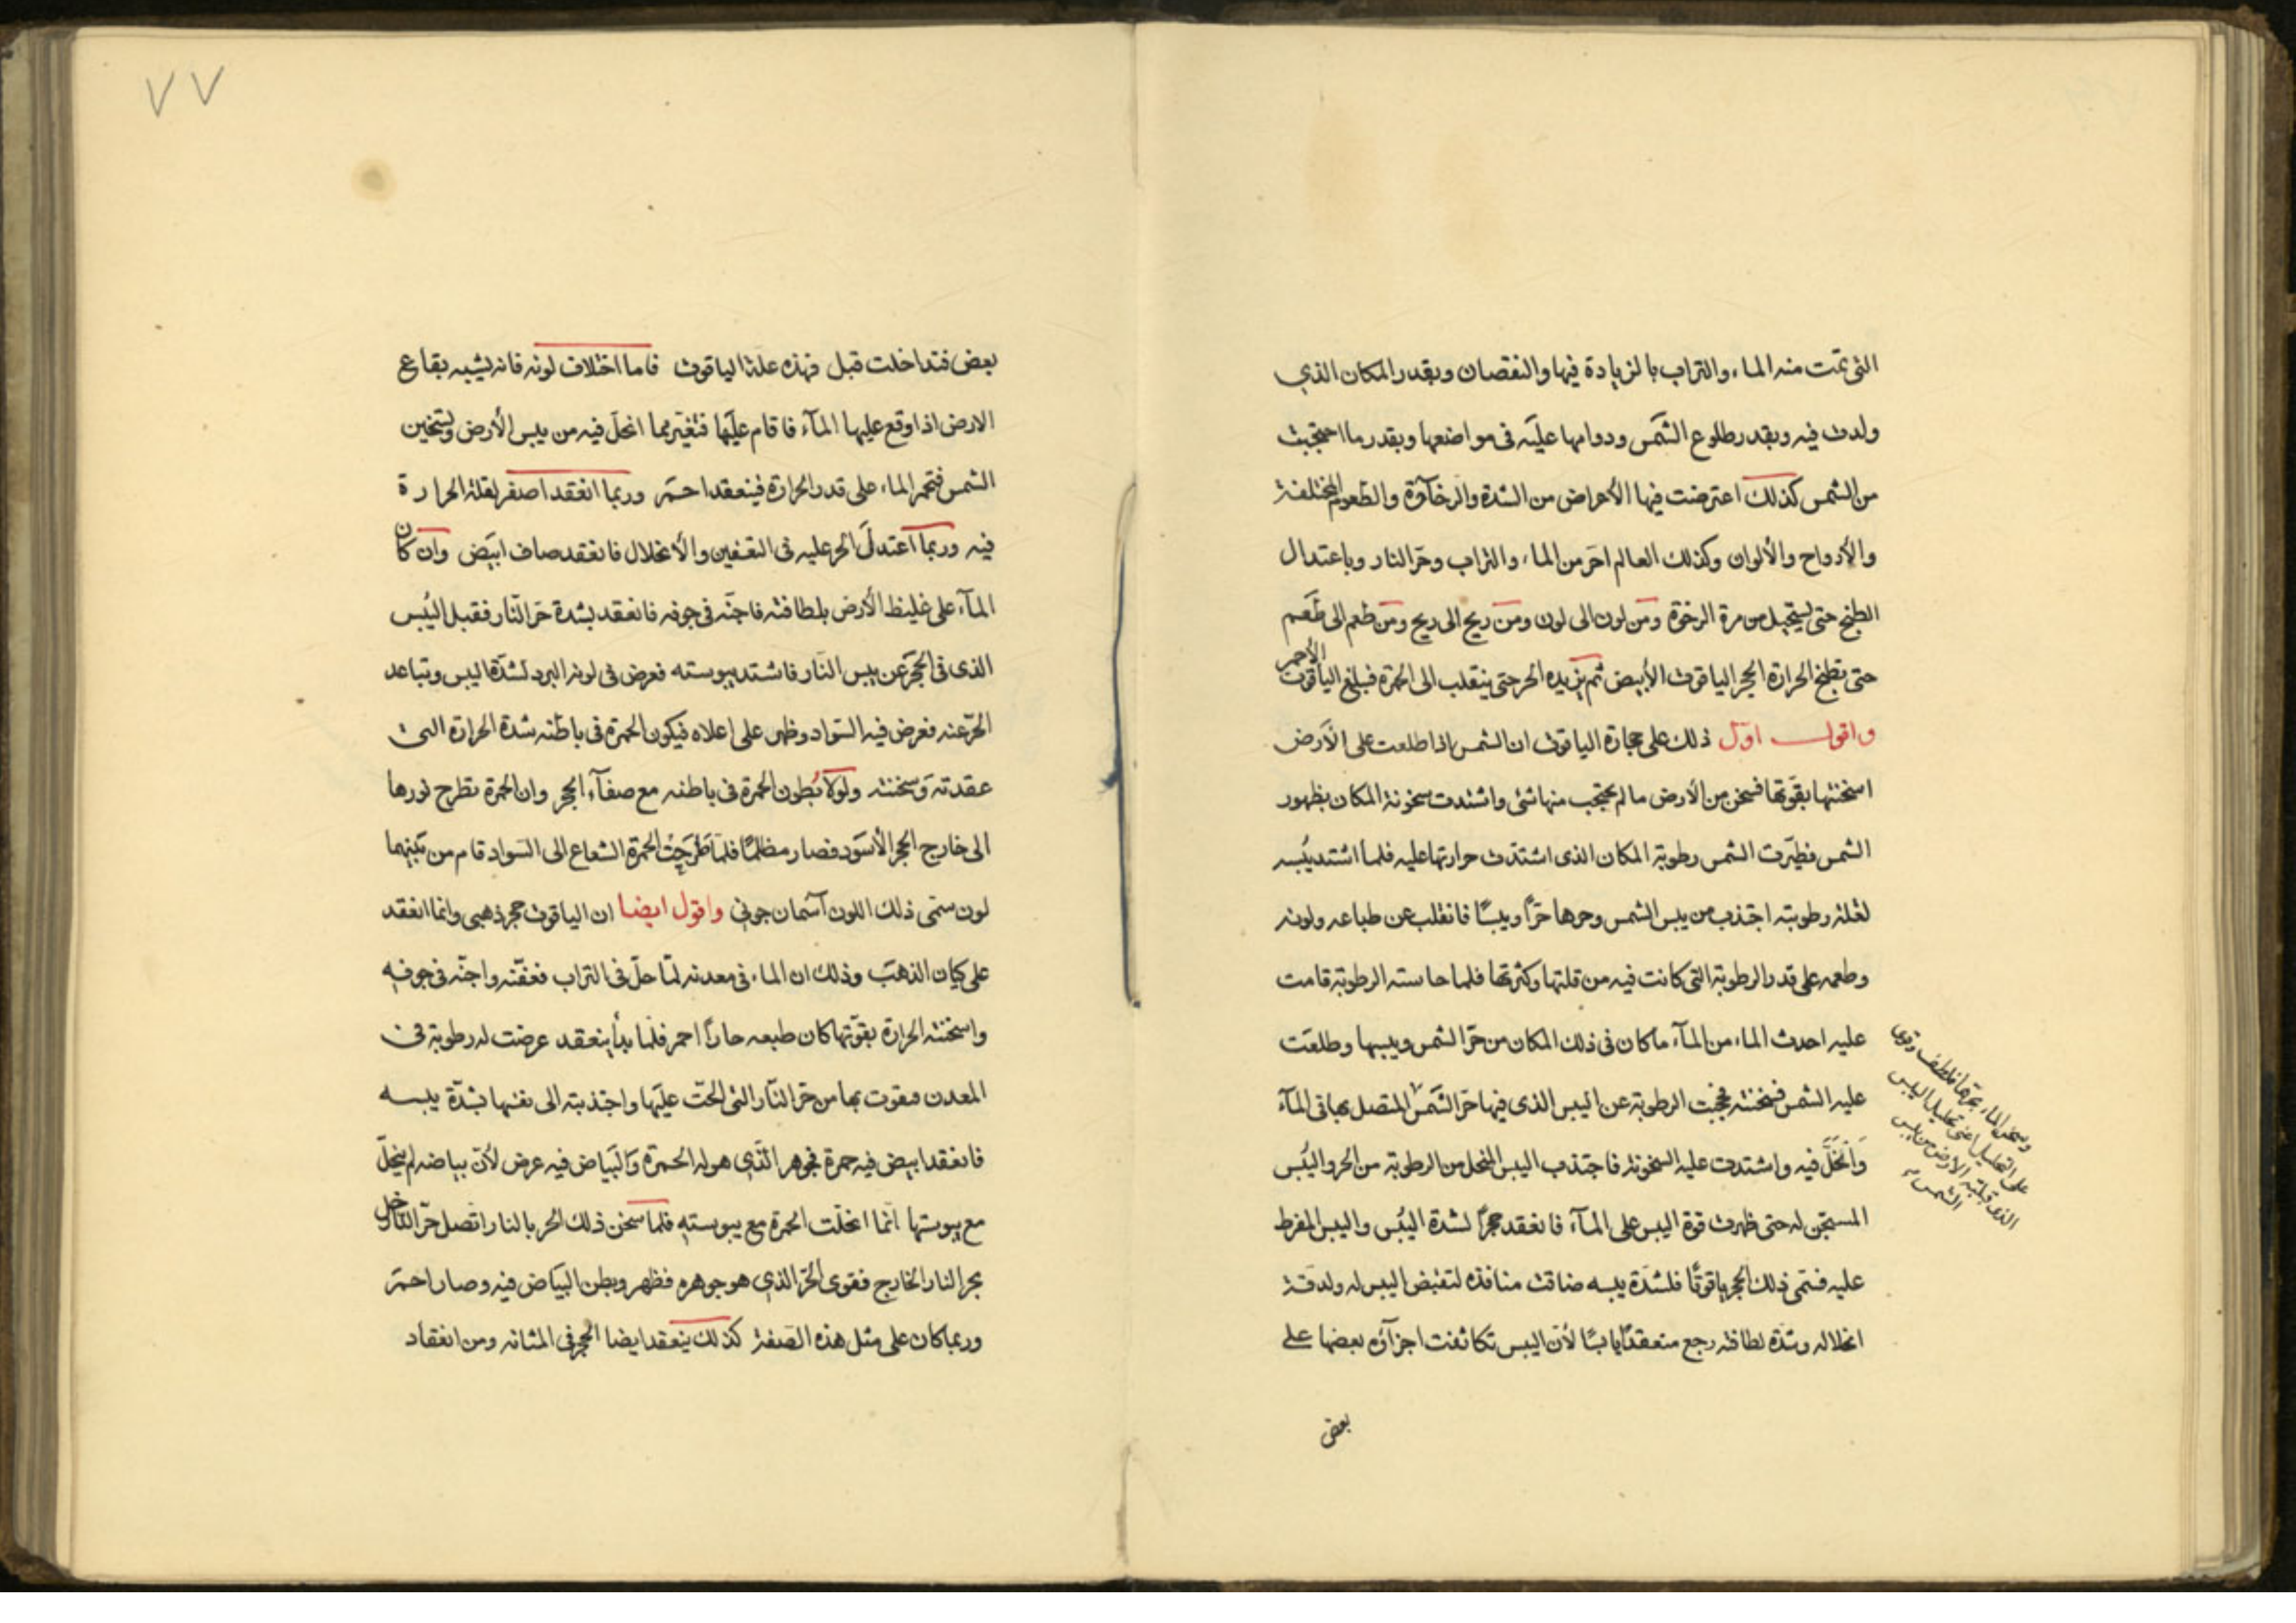 التى تمت منه الماء والتراب بالزيادة فيها والنقصان وبقدر المكان الذي
ولدت فيه وبقدر طلوع الشمس ودوامها عليه فى مواضعها وبقدر ما احتجبت
من الشمس كذلك اعترضت فيها الأعراض من الشدة والرخاوة والطعوم المختلفة
والأرواح والألوان وكذلك العالم احر من الماء والتراب وحر النار وباعتدال
الطبخ حتى يستحيل من مرة الرخوة ومن لون الى لون ومن ريح الى ريح ومن طعم الى طعم
حتى تطبخ الحرارة الحجر الياقوت الأبيض ثم يزيده الحر حتى ينقلب الى الحمرة فيبلغ الياقوت الأحمر
واقول اول ذلك على حجارة الياقوت ان الشمس اذا طلعت على الأرض
اسخنتها بقوتها فسخن من الأرض ما لم يحتجب منها شئ واشتدت سخونة المكان بظهور
الشمس فطيرت الشمس رطوبة المكان الذى اشتدت حرارتها عليه فلما اشتد يبسه
لقلة رطوبته اجتذب من يبس الشمس وحرها حرًا ويبسًا فانقلب عن طباعه ولونه
وطعمه على قدر الرطوبة التى كانت فيه من قلتها وكثرتها فلما حاسته الرطوبة قامت
عليه احدث الماء من المآء ما كان فى ذلك المكان من حر الشمس ويبسها وطلعت
عليه الشمس فسخنته فحجبت الرطوبة عن اليبس الذى فيها حر الشمس المتصل بها فى المآء
وانحل فيه واشتدت عليه السخونة فاجتذب اليبس المنحل من الرطوبة من الحر واليبس
المستجن له حتى ظهرت قوة اليبس على المآء فانعقد حجرًا لشدة اليبس واليبس المفرط
عليه فسمى ذلك الحجر ياقوتًا فلشدة يبسه ضاقت منافذه لتقبض اليبس له ولدقة
انحلاله وشدة لطافته رجع منعقدًا يابسًا لأن اليبس تكاثفت اجزآؤه بعضها على
بعض
وسخن الماء بحرها فلطف وقوى
على التحليل اعنى تحليل اليبس
الذى قبلته الارض من يبس
الشمس
٧٧
بعض فتداخلت قبل فهذه علة الياقوت فاما اختلاف لونه فانه يشبه بقاع
الارض اذا وقع عليها المآء فاقام عليها فتغير مما انحل فيه من يبس الأرض وتسخين
الشمس فتحمر الماء على قدر الحرارة فينعقد احمر وربما انعقد اصفر لقلة الحرارة
فيه وربما اعتدل الحر عليه فى التعفين والأنحلال فانعقد صاف ابيض وان كان
المآء على غليظ الأرض بلطافته فاجنه فى جوفه فانعقد بشدة حر النار فقبل اليبس
الذى فى الحجر عن يبس النار فاشتد يبوسته فعرض فى لونه البرد لشدة اليبس وتباعد
الحر عنه فعرض فيه السواد وظهر على اعلاه فيكون الحمرة فى باطنه شدة الحرارة التى
عقدته وسخنته ولولا بطون الحمرة فى باطنه مع صفآء الحجر وان الحمرة تطرح نورها
الى خارج الحجر الأسود فصار مظلمًا فلما طرحت الحمرة الشعاع الى السواد قام من بينهما
لون سمى ذلك اللون آسمان جونى واقول ايضا ان الياقوت حجر ذهبى وانما انعقد
على كيان الذهب وذلك ان الماء فى معدنه لما حل فى التراب فعفنه واجنه فى جوفه
واسخنته الحرارة بقوتها كان طبعه حارًا احمر فلما بدأ ينعقد عرضت له رطوبة فى
المعدن فقوت بها من حر النار التى الحت عليها واجتذبته الى نفسها بشدة يبسه
فانعقد ابيض فيه حمرة فجوهر الذى هو له الحمرة والبياض فيه عرض لأن بياضه لم ينحل
مع يبوستها انما انحلت الحمرة مع يبوسته فلما سخن ذلك الحر بالنار اتصل حر النار الداخل
بحر النار الخارج فقوى الحر الذى هو جوهره فظهر وبطن البياض فيه وصار احمر
وربما كان على مثل هذه الصفة كذلك ينعقد ايضا الحجر فى المثانه ومن انعقاد